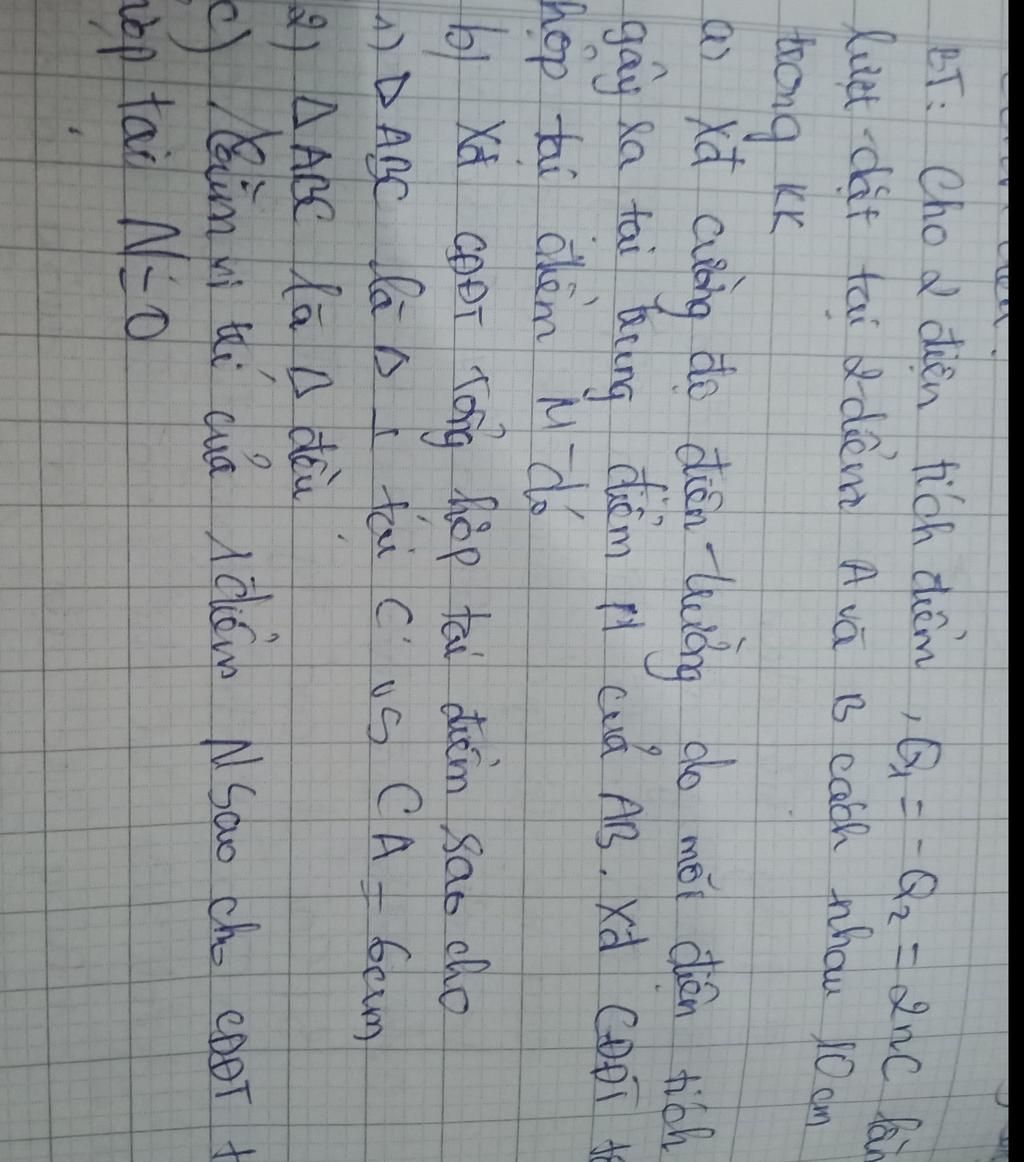 BT: Cho 2 điện tích điểm, Q1 = - Q2 = 2nC lần
lượt đặt tại 2 điểm A và B cách nhau 10 cm
trong KK
a) Xđ cường độ điện trường do mỗi điện tích
gây ra tại trung điểm M của AB. Xđ CĐĐT
hợp tại điểm M đó
b) Xđ CĐĐT tổng hợp tại điểm sao cho
1) Δ ABC là Δ ⊥ tại C vs CA = 6cm
2) Δ ABC là Δ đều
c) vị trí của 1 điểm N sao cho CĐĐT t
hợp tại N = 0